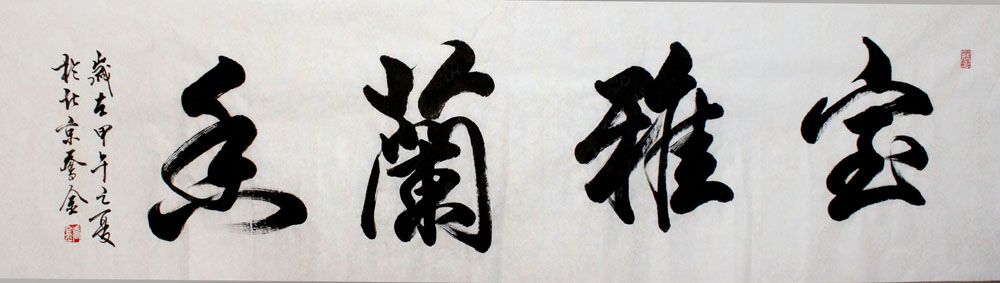 室雅蘭香
歲在甲午之夏
於北京金